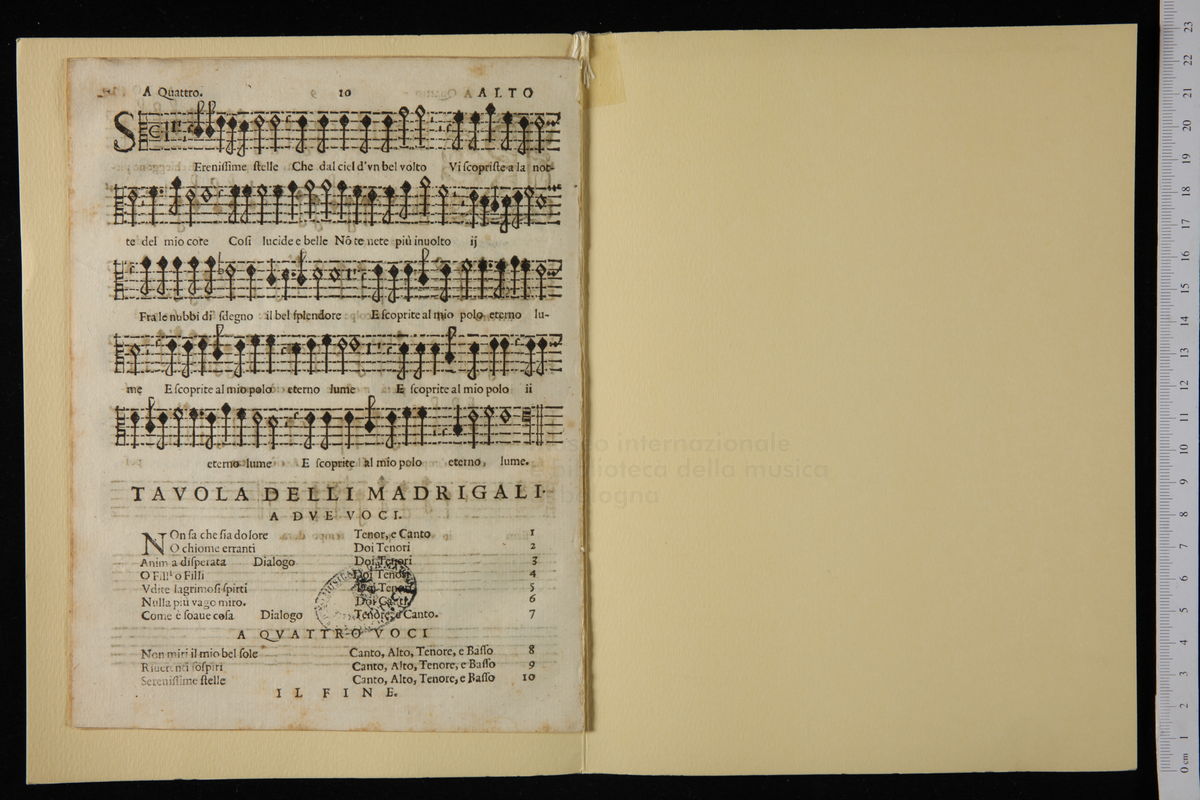 A Quattro. 10 ALTO
SErenissime stelle Che dal ciel d'vn bel volto Vi scopriste a la not-
te del mio core Cosi lucide e belle Nō te nete più inuolto ij
Fra le nubbi di sdegno il bel splendore E scoprite al mio polo eterno lu-
me E scoprite al mio polo eterno lume E scoprite al mio polo ii
eterno lume E scoprite al mio polo eterno, lume.
TAVOLA DELLI MADRIGALI.
A DVE VOCI.
NOn sa che sia dolore Tenor, e Canto 1
O chiome erranti Doi Tenori 2
Anima disperata Dialogo Doi Tenori 3
O Filli o Filli Doi Tenori 4
Vdite lagrimosi spirti Doi Tenori 5
Nulla più vago miro. Doi Canti 6
Come è soaue cosa Dialogo Tenore, e Canto. 7
A QVATTRO VOCI
Non miri il mio bel sole Canto, Alto, Tenore, e Basso 8
Riuerenti sospiri Canto, Alto, Tenore, e Basso 9
Serenissime stelle Canto, Alto, Tenore, e Basso 10
IL FINE.
museo internazionale
e biblioteca della musica
di bologna
0 cm 1 2 3 4 5 6 7 8 9 10 11 12 13 14 15 16 17 18 19 20 21 22 23